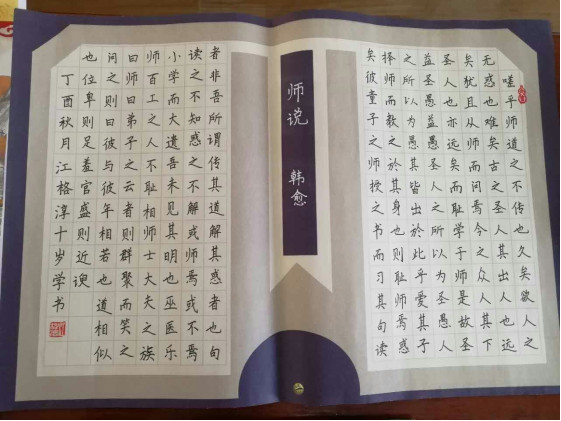 嗟乎师道之不传也久矣欲人之
无惑也难矣古之圣人其出人也远
矣犹且从师而问焉今之众人其下
圣人也亦远矣而耻学于师是故圣
益圣愚益愚圣人之所以为圣愚人
之所以为愚其皆出於此乎爱其子
择师而教之於其身也则耻师焉惑
矣彼童子之师授之书而习其句读
师说 韩愈
者非吾所谓传其道解其惑者也句
读之不知惑之不解或师焉或不焉
小学而大遗吾未见其明也巫医乐
师百工之人不耻相师士大夫之族
曰师曰弟子之云者则群聚而笑之
问之则曰彼与彼年相若也道相似
也位卑则足羞官盛则近谀
丁酉秋月江格淳十岁学书